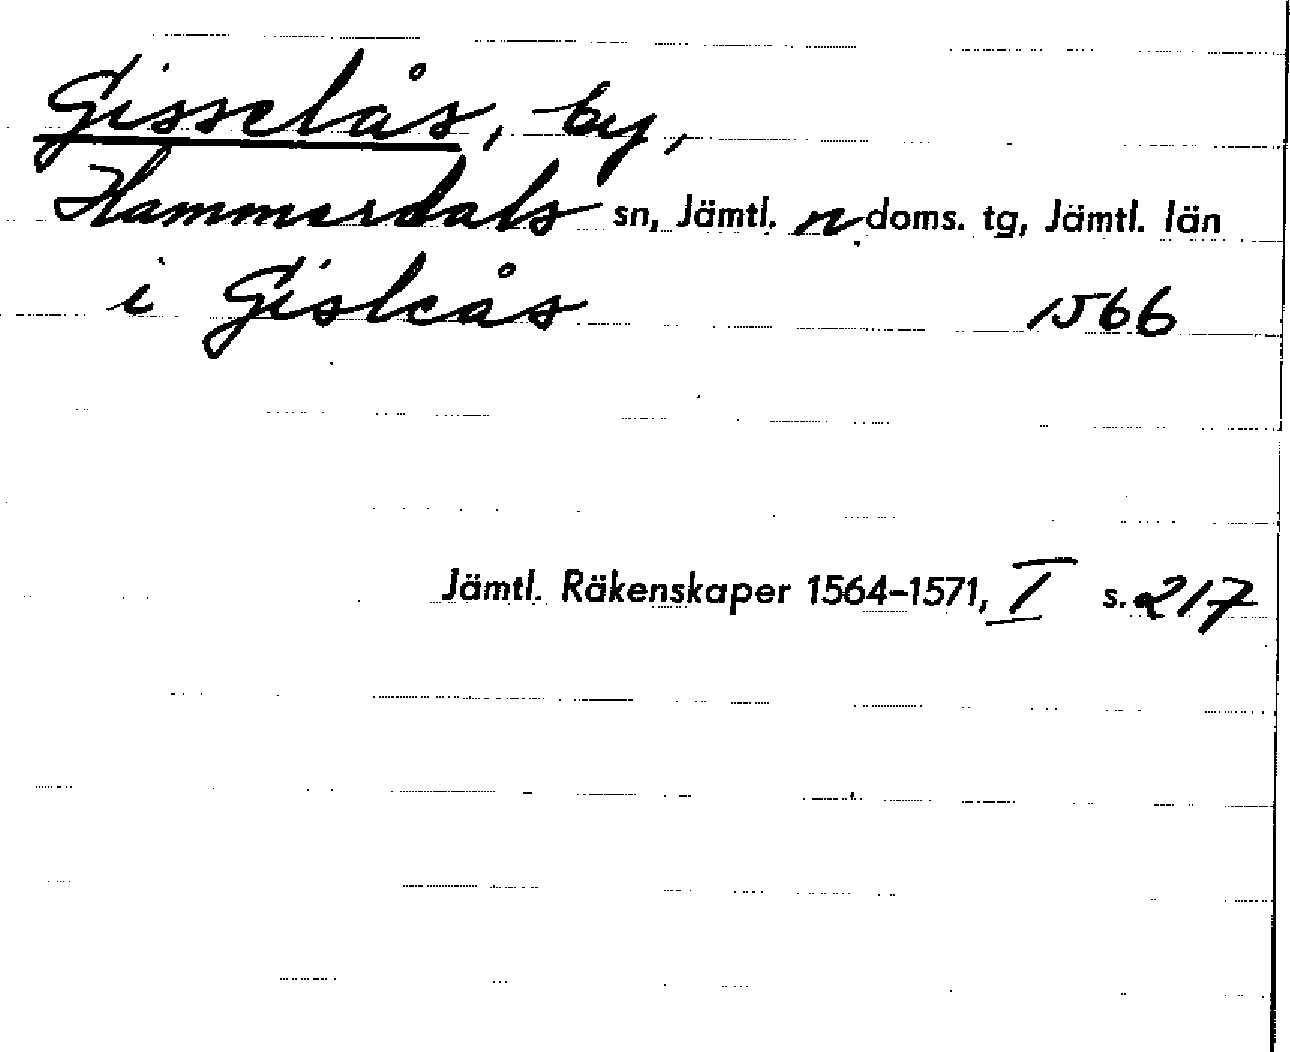 Gisselås, by,
Hammerdals sn, Jämtl. n doms. tg, Jämtl. län
i Gisleås 1566
Jämtl. Räkenskaper 1564-1571, I s. 217